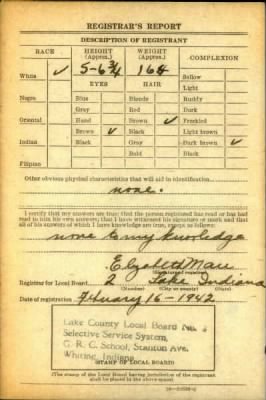 REGISTRAR'S REPORT
DESCRIPTION OF REGISTRANT
RACE HEIGHT (Approx.) WEIGHT (Approx.) COMPLEXION
White ✓ 5-6¾ 164 Sallow
EYES HAIR Light
Negro Blue Blonde Ruddy
Gray Red Dark
Oriental Hazel Brown ✓ Freckled
Brown ✓ Black Light brown
Indian Black Gray Dark brown ✓
Bald Black
Filipino
Other obvious physical characteristics that will aid in identification
none.
I certify that my answers are true; that the person registered has read or has had
read to him his own answers; that I have witnessed his signature or mark and that
all of his answers of which I have knowledge are true, except as follows:
none to my knowledge
Elizabeth
Registrar for Local Board 2 Lake Indiana
(Number) (City or county) (State)
Date of registration February 16-1942
Lake County Local Board No.
Selective Service System,
G. R. C. School, Stanton Ave.
Whiting, Indiana
STAMP OF LOCAL BOARD
(The stamp of the Local Board having jurisdiction of the registrant
shall be placed in the above space)